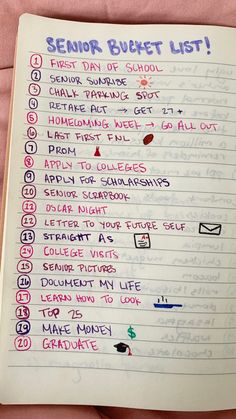 SENIOR BUCKET LIST!
1 FIRST DAY OF SCHOOL
2 SENIOR SUNRISE
3 CHALK PARKING SPOT
4 RETAKE ACT → GET 27+
5 HOMECOMING WEEK → GO ALL OUT
6 LAST FIRST FNL
7 PROM
8 APPLY TO COLLEGES
9 APPLY FOR SCHOLARSHIPS
10 SENIOR SCRAPBOOK
11 OSCAR NIGHT
12 LETTER TO YOUR FUTURE SELF
13 STRAIGHT AS
14 COLLEGE VISITS
15 SENIOR PICTURES
16 DOCUMENT MY LIFE
17 LEARN HOW TO COOK
18 TOP 25
19 MAKE MONEY $
20 GRADUATE